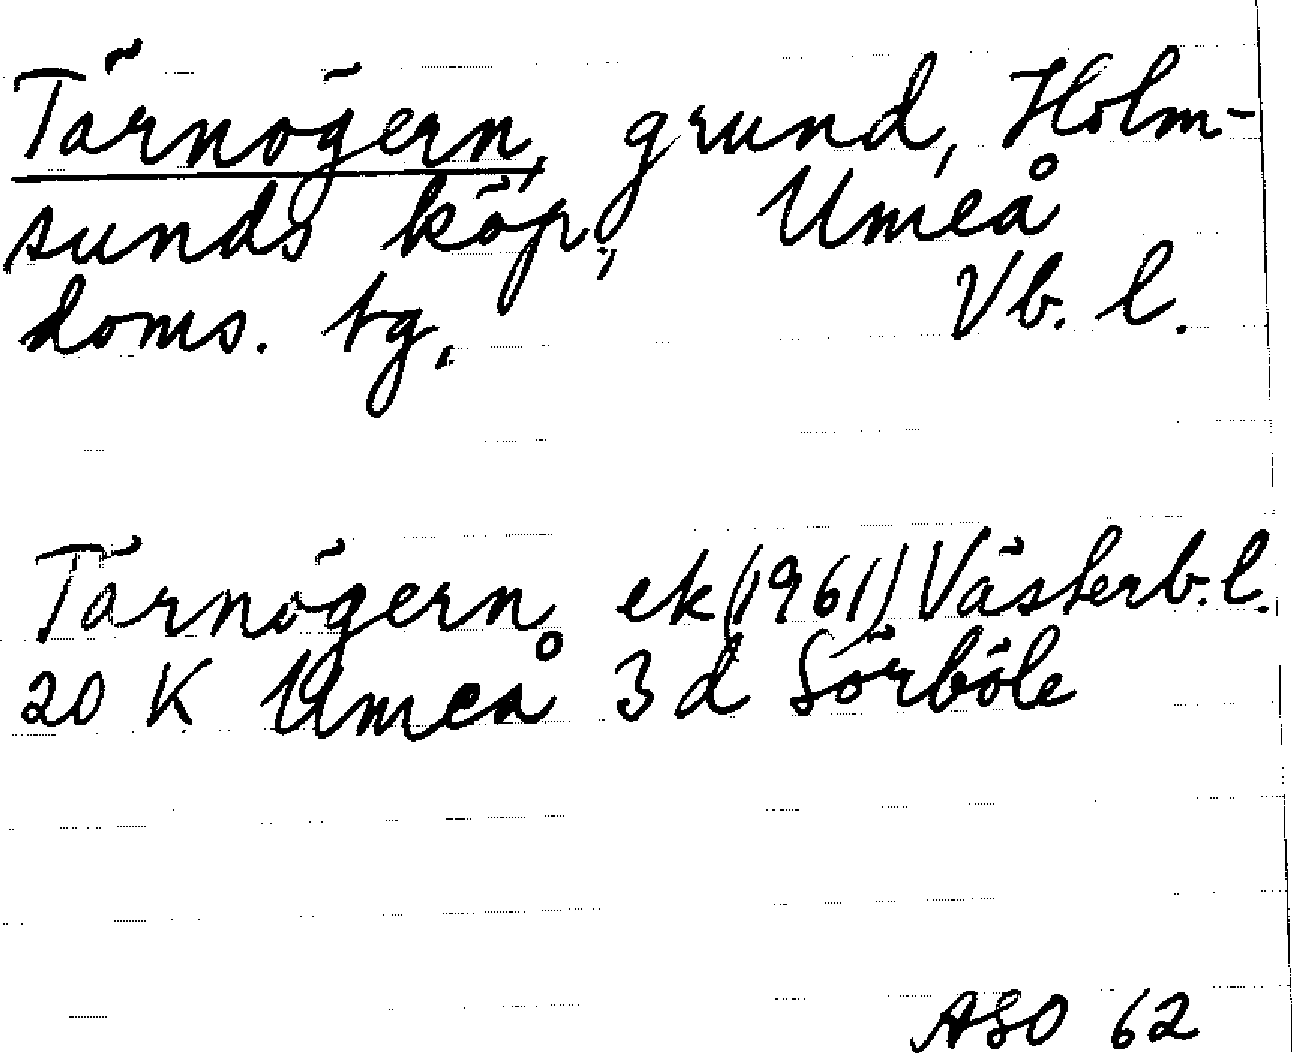 Tärnögern, grund, Holm-
sunds köp., Umeå
doms. tg. Vb. l.
Tärnögern ek (1961) Västerb. l.
20 K Umeå 3 d Sörböle
ASO 62